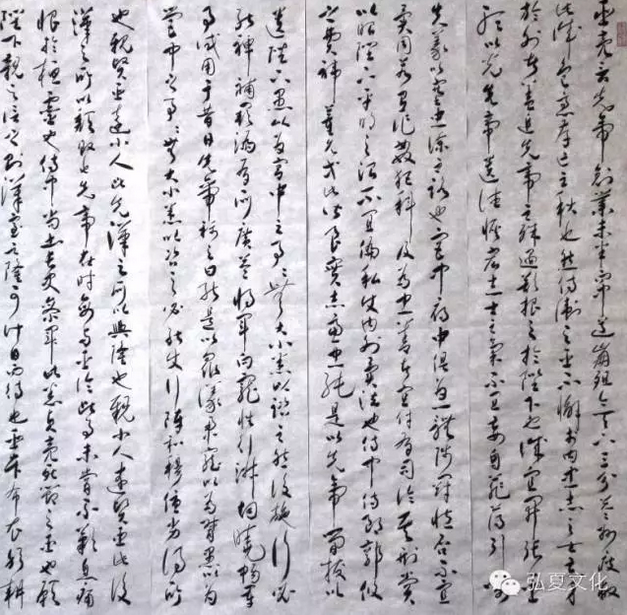 臣亮言先帝創業未半而中道崩殂今天下三分益州疲敝
此誠危急存亡之秋也然侍衛之臣不懈於内忠志之士忘身
於外者蓋追先帝之殊遇欲報之於陛下也誠宜開張聖
聽以光先帝遺德恢宏志士之氣不宜妄自菲薄引喻
失義以塞忠諫之路也宮中府中俱為一體陟罰臧否不宜
異同若有作姦犯科及為忠善者宜付有司論其刑賞
以昭陛下平明之治不宜偏私使内外異法也侍中侍郎郭攸
之費禕董允等此皆良實志慮忠純是以先帝簡拔以
遺陛下愚以為宮中之事事無大小悉以諮之然後施行必
能裨補闕漏有所廣益將軍向寵性行淑均曉暢軍
事試用于昔日先帝稱之曰能是以眾議舉寵以為督愚以為
營中之事事無大小悉以咨之必能使行陣和穆優劣得所
也親賢臣遠小人此先漢之所以興隆也親小人遠賢臣此後
漢之所以頹敗也先帝在時每與臣論此事未嘗不歎息痛
恨於桓靈也侍中尚書長史參軍此悉貞亮死節之臣也願
陛下親之信之則漢室之隆可計日而待也臣本布衣躬耕
弘夏文化